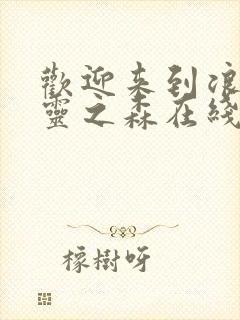 歡迎來到浪
靈之森在綫
橡樹呀